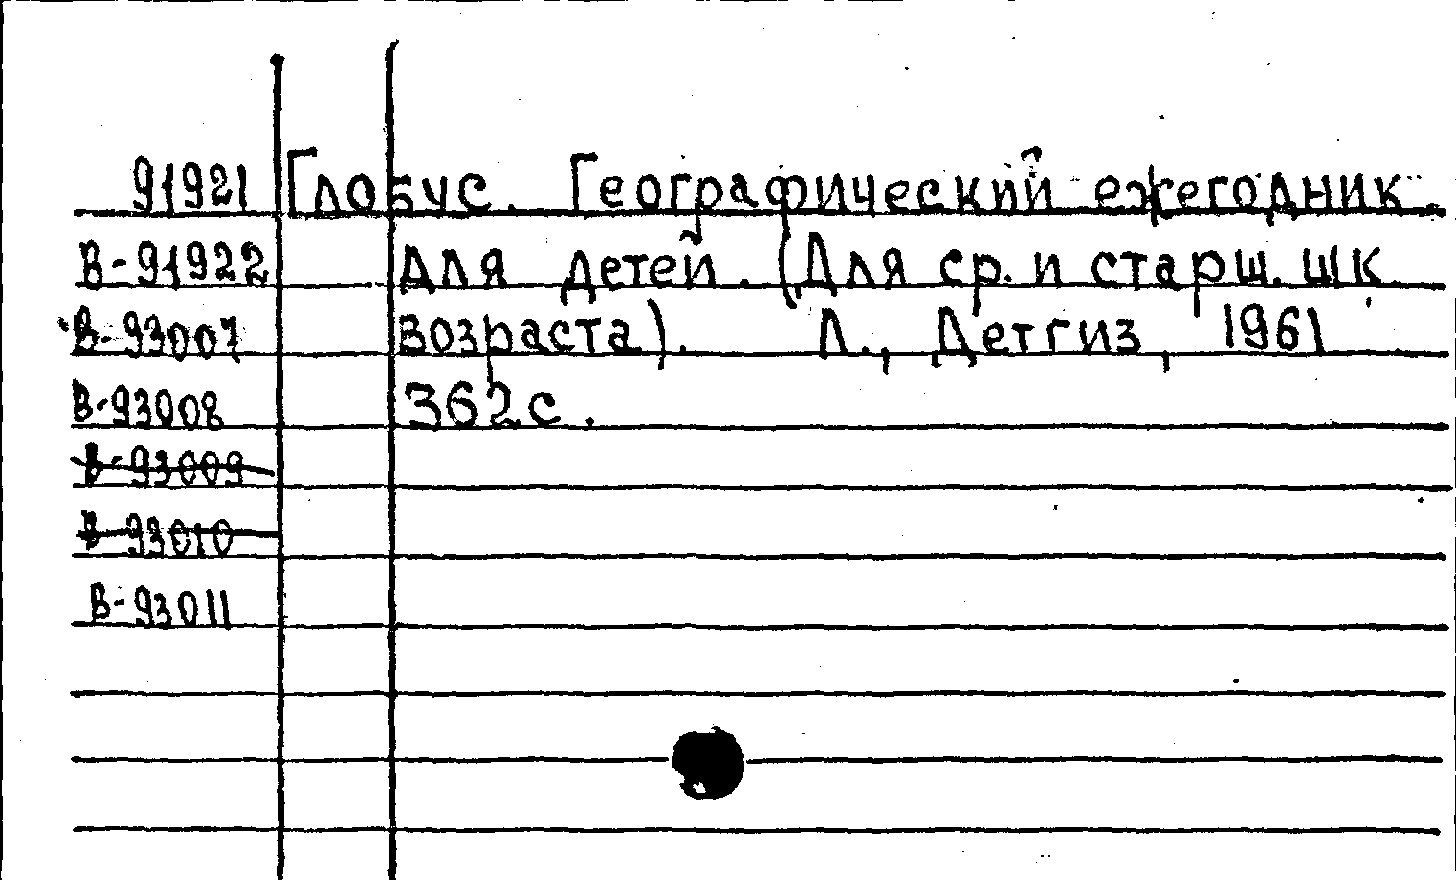 91921 Глобус. Географический ежегодник.
В-91922 для детей. (Для ср. и старш. шк.
В-93007 возраста). Л., Детгиз, 1961
В-93008 362с.
В-93009
В-93010
В-93011